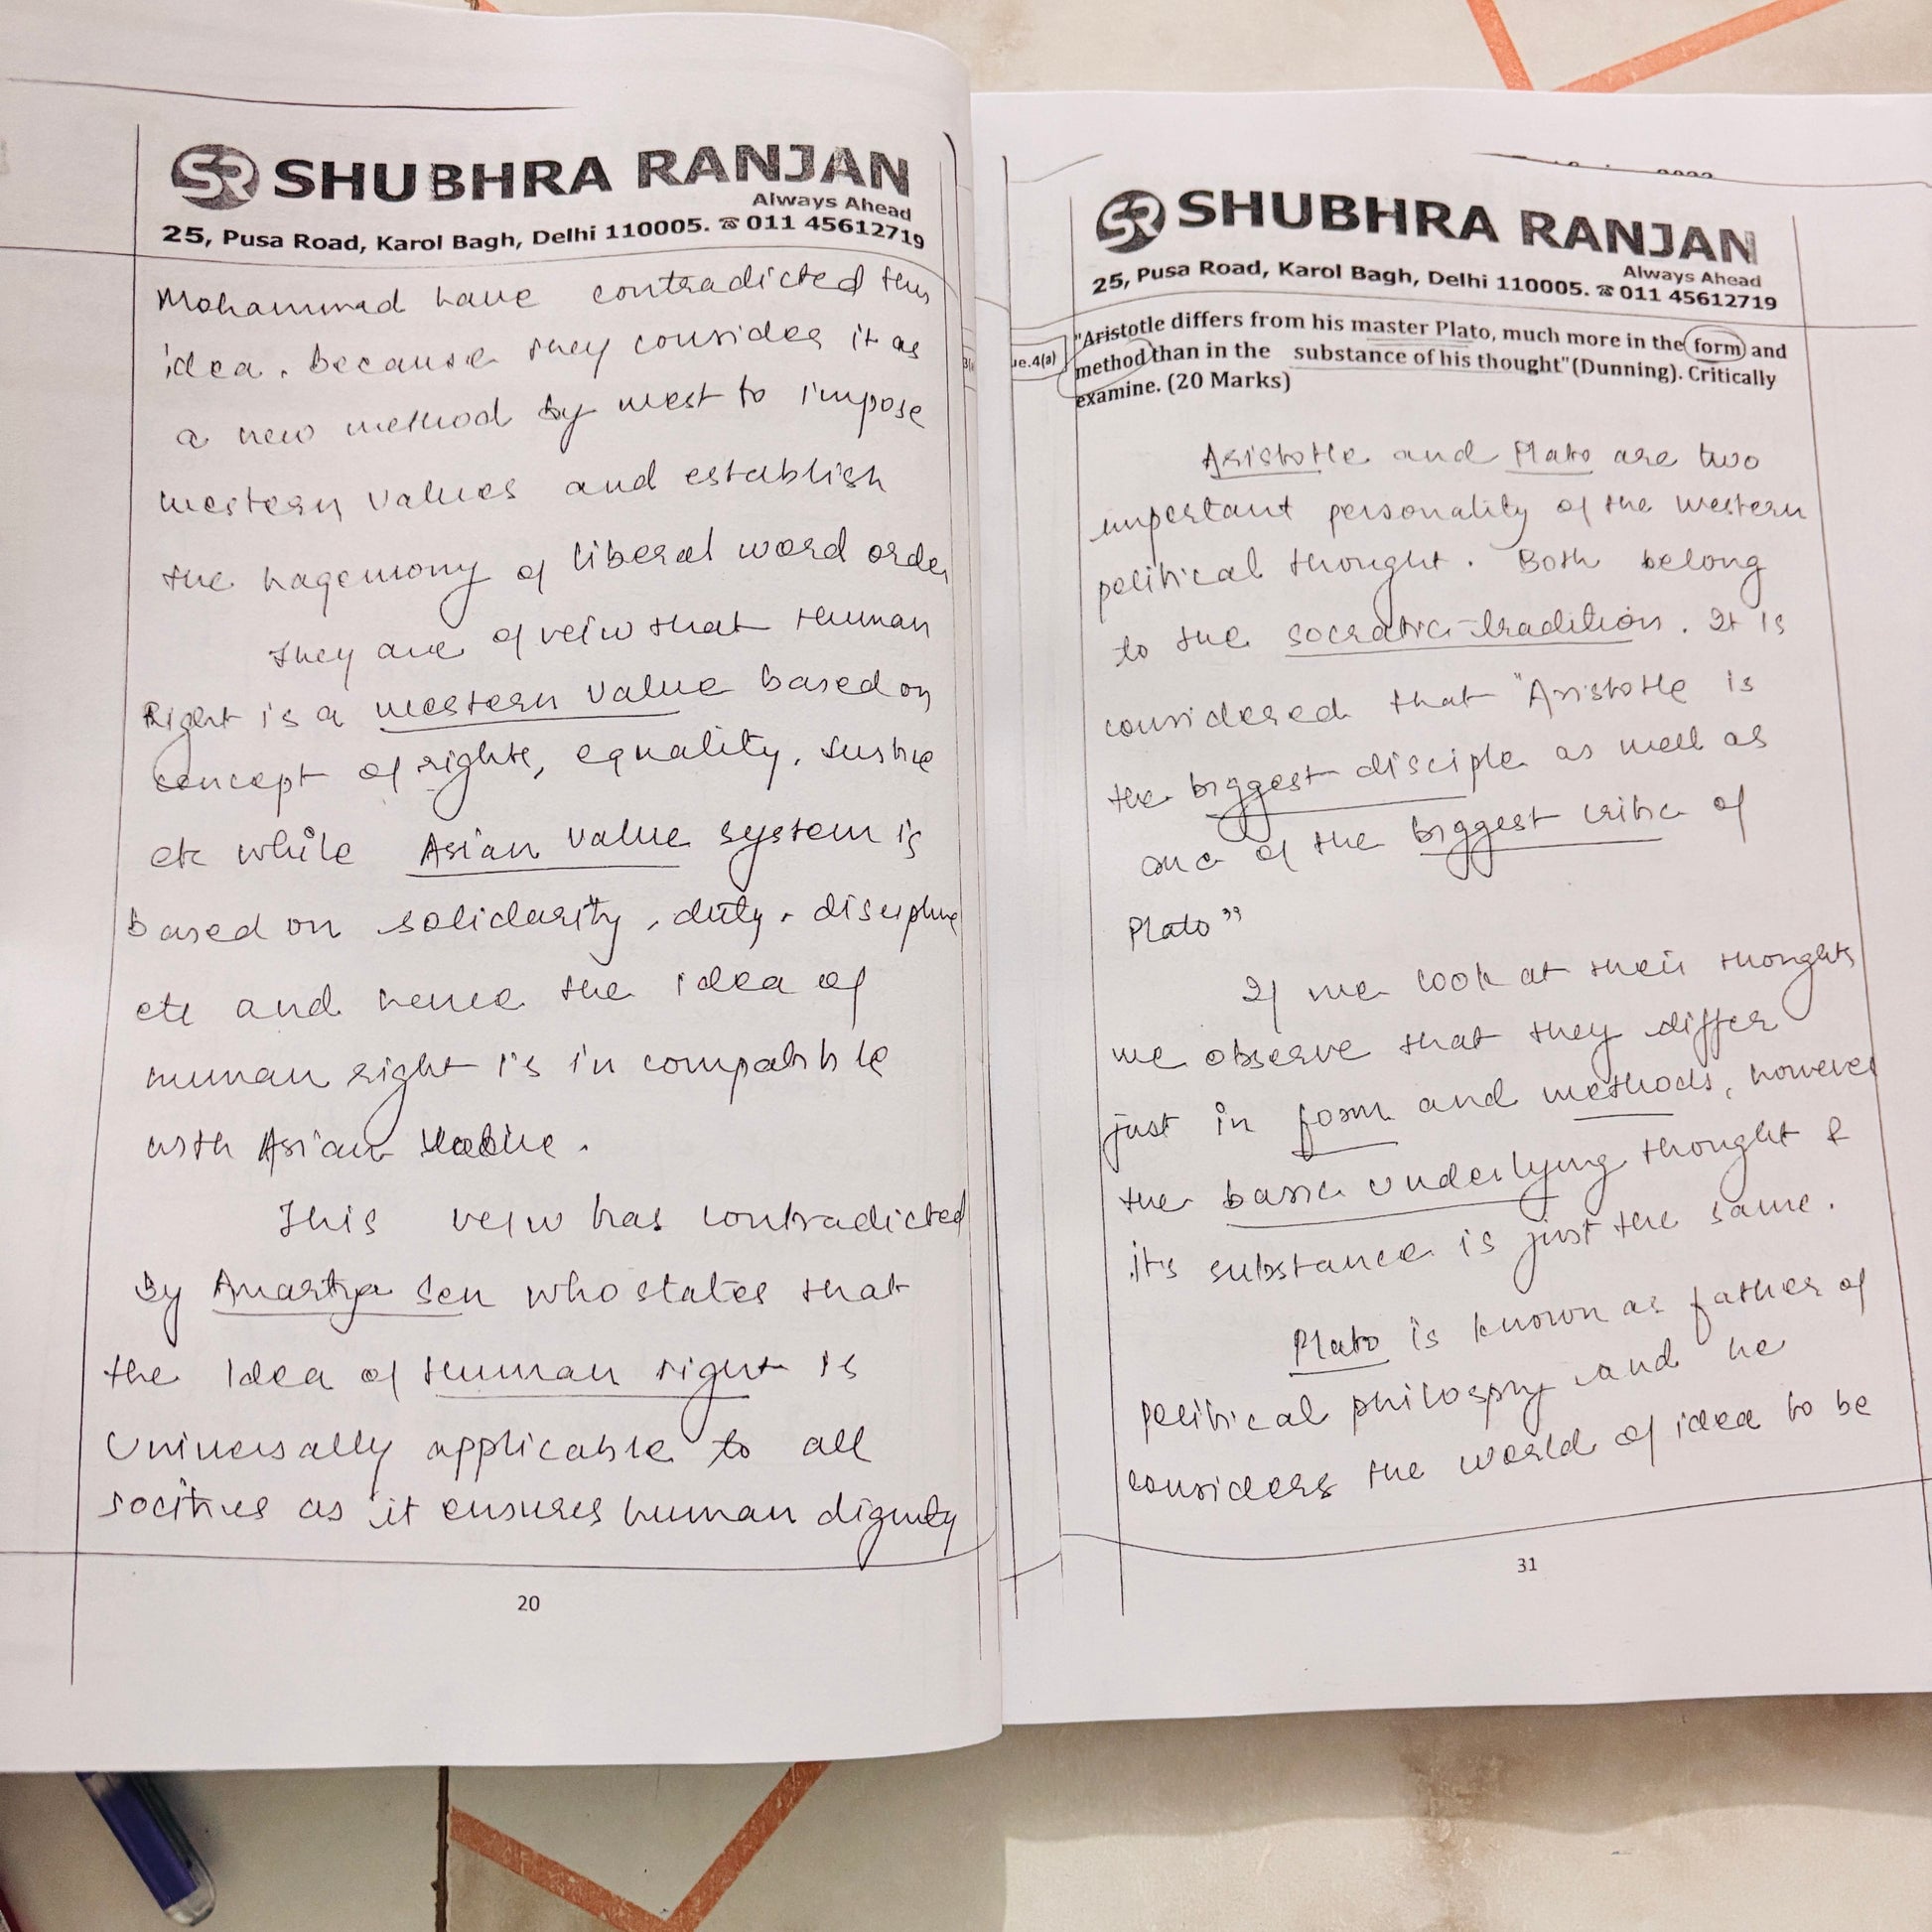 SR SHUBHRA RANJAN
Always Ahead
25, Pusa Road, Karol Bagh, Delhi 110005. ☎ 011 45612719
Mohammad have contradicted this
idea. because they consider it as
a new method by west to impose
western values and establish
the hagemony of liberal word order
They are of veiw that Human
Right is a western value based on
concept of rights, equality, Justice
etc while Asian value system is
based on solidarity, duty, discipline
etc and hence the idea of
human right is in compatible
with Asian value.
This veiw has contradicted
by Amartya Sen who states that
the Idea of Human right is
Universally applicable to all
socities as it ensures human dignity
20
SR SHUBHRA RANJAN
Always Ahead
25, Pusa Road, Karol Bagh, Delhi 110005. ☎ 011 45612719
ue.4(a)
"Aristotle differs from his master Plato, much more in the form and
method than in the substance of his thought"(Dunning). Critically
examine. (20 Marks)
Aristotle and Plato are two
important personality of the western
political thought. Both belong
to the socratic tradition. It is
considered that "Aristotle is
the biggest disciple as well as
one of the biggest critic of
Plato"
If we look at their thoughts
we observe that they differ
just in form and methods, however
the basic underlying thought &
it's substance is just the same.
Plato is known as father of
political philospny and he
considers the world of idea to be
31